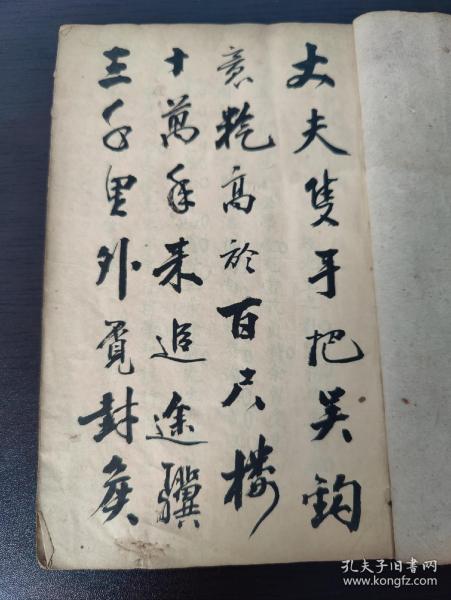 丈夫隻手把吴鈎
意氣高於百尺樓
十萬年来追途驥
三千里外覓封侯
孔夫子旧书网
www.kongfz.com